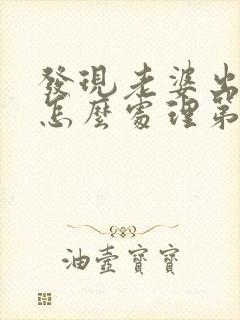 發現老婆出
怎麼處理第
油壺寶寶